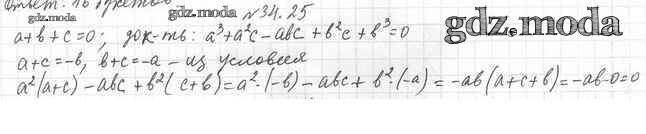 Ответ: 10
gdz.moda gdz.moda №34.25 gdz.moda
a+b+c=0; док-ть: a³+a²c-abc+b²c+b³=0
a+c=-b, b+c=-a - из условия
a²(a+c)-abc+b²(c+b)=a²·(-b)-abc+b²·(-a)=-ab(a+c+b)=-ab·0=0